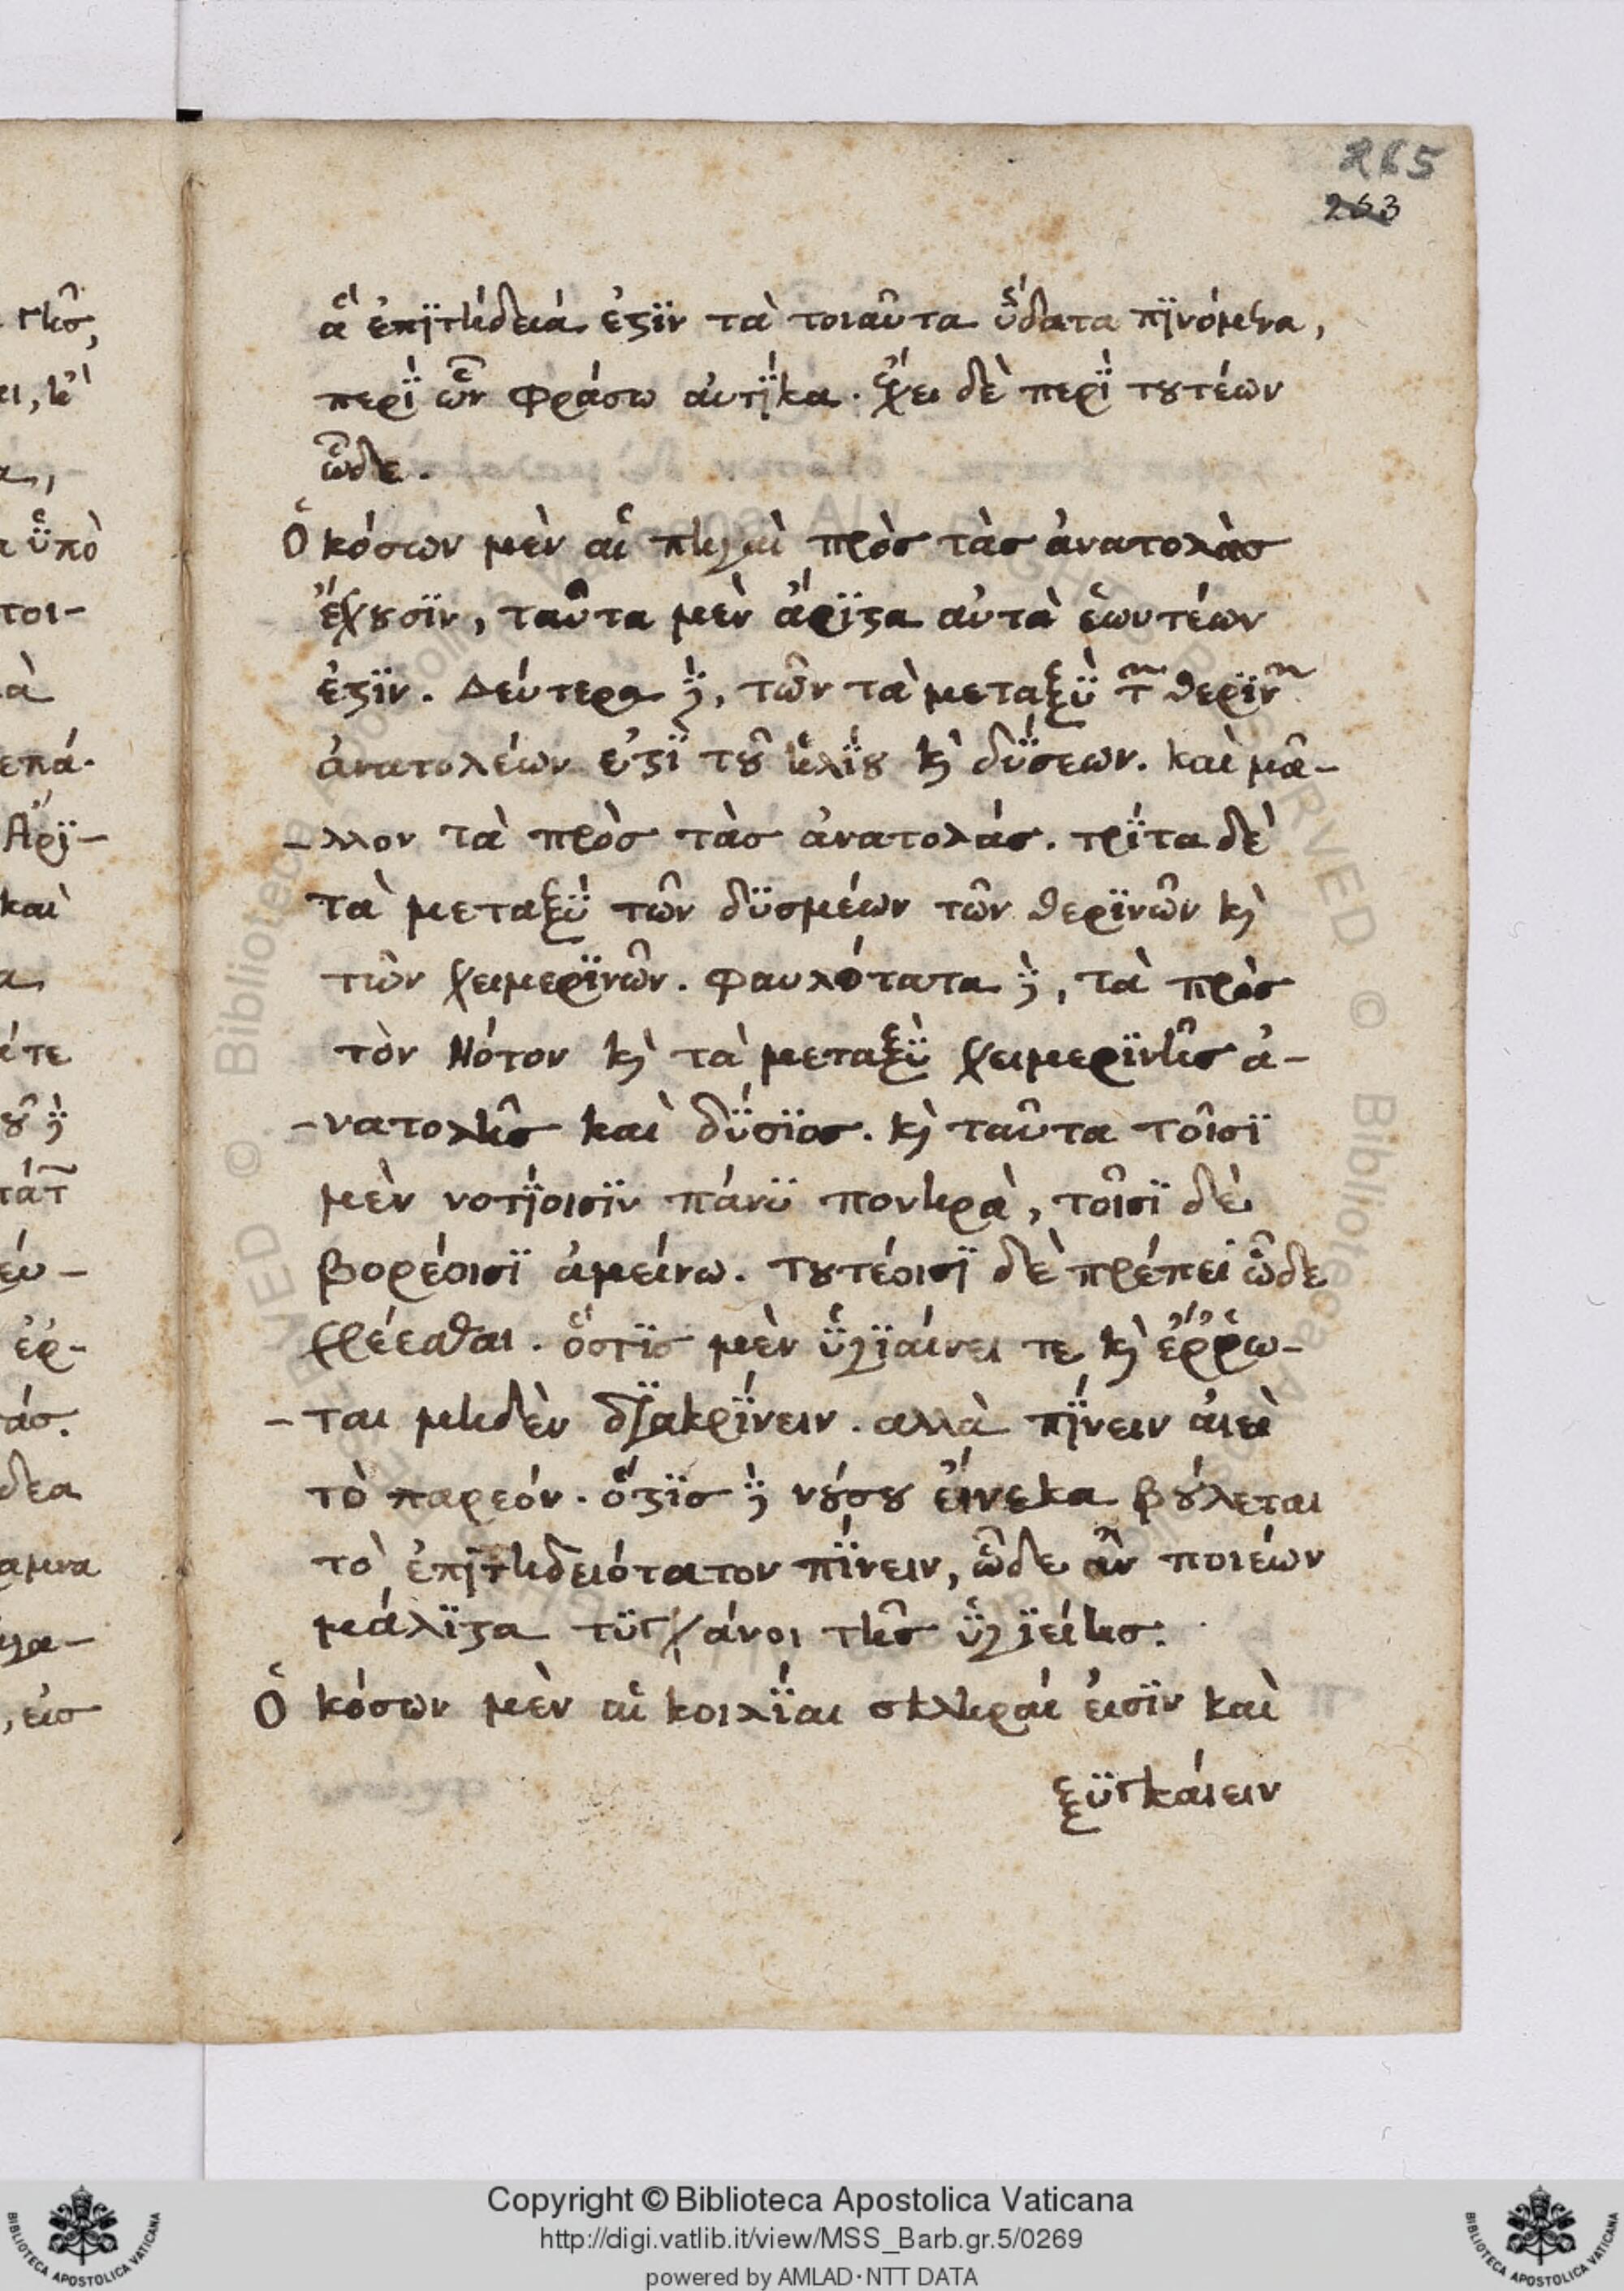 265
263
ἅ ἐπϊτήδειά ἐστϊν τὰ τοιαῦτα ὕδατα πϊνόμενα,
περΐ ὧν φράσω αὐτΐκα. ἔχει δὲ περΐ τουτέων
ὧδε.
Ὁκόσων μὲν αἱ πηγαὶ πρὸς τὰς ἀνατολὰς
ἔχουσϊν, ταῦτα μὲν ἄρϊστα αὐτὰ ἑωυτέων
ἐστϊν. Δεύτερα δὲ, τῶν τὰ μεταξῢ τῶν θερϊνῶν
ἀνατολέων ἐστΐ τοῦ ἡλΐου κὶ δΰσεων. καὶ μᾶ-
-λλον τὰ πρὸς τὰς ἀνατολάς. τρΐτα δὲ
τὰ μεταξῢ τῶν δϋσμέων τῶν θερϊνῶν κὶ
τῶν χειμερϊνῶν. φαυλότατα δὲ, τὰ πρὸς
τὸν Νότον κὶ τὰ μεταξῢ χειμερϊνῆς ἀ-
-νατολῆς καὶ δΰσϊος. κὶ ταῦτα τοῖσϊ
μὲν νοτΐοισϊν πάνϋ πονηρὰ, τοῖσϊ δὲ
βορέοισϊ ἀμείνω. τουτέοισϊ δὲ πρέπει ὧδε
χρέεσθαι. ὅστϊς μὲν ὑγϊαίνει τε κὶ ἔρρω-
-ται μηδὲν δϊακρΐνειν. αλλὰ πΐνειν αἰεὶ
τὸ παρεόν. ὅστϊς δὲ νούσου εἵνεκα βούλεται
τὸ ἐπϊτηδειότατον πΐνειν, ὧδε ἂν ποιέων
μάλϊστα τϋγχάνοι τῆς ὑγϊείης:
Ὁκόσων μὲν αἱ κοιλΐαι σκληραί εἰσϊν καὶ
ξϋγκαίειν
Copyright © Biblioteca Apostolica Vaticana
http://digi.vatlib.it/view/MSS_Barb.gr.5/0269
powered by AMLAD·NTT DATA
BIBLIOTECA APOSTOLICA VATICANA
BIBLIOTECA APOSTOLICA VATICANA